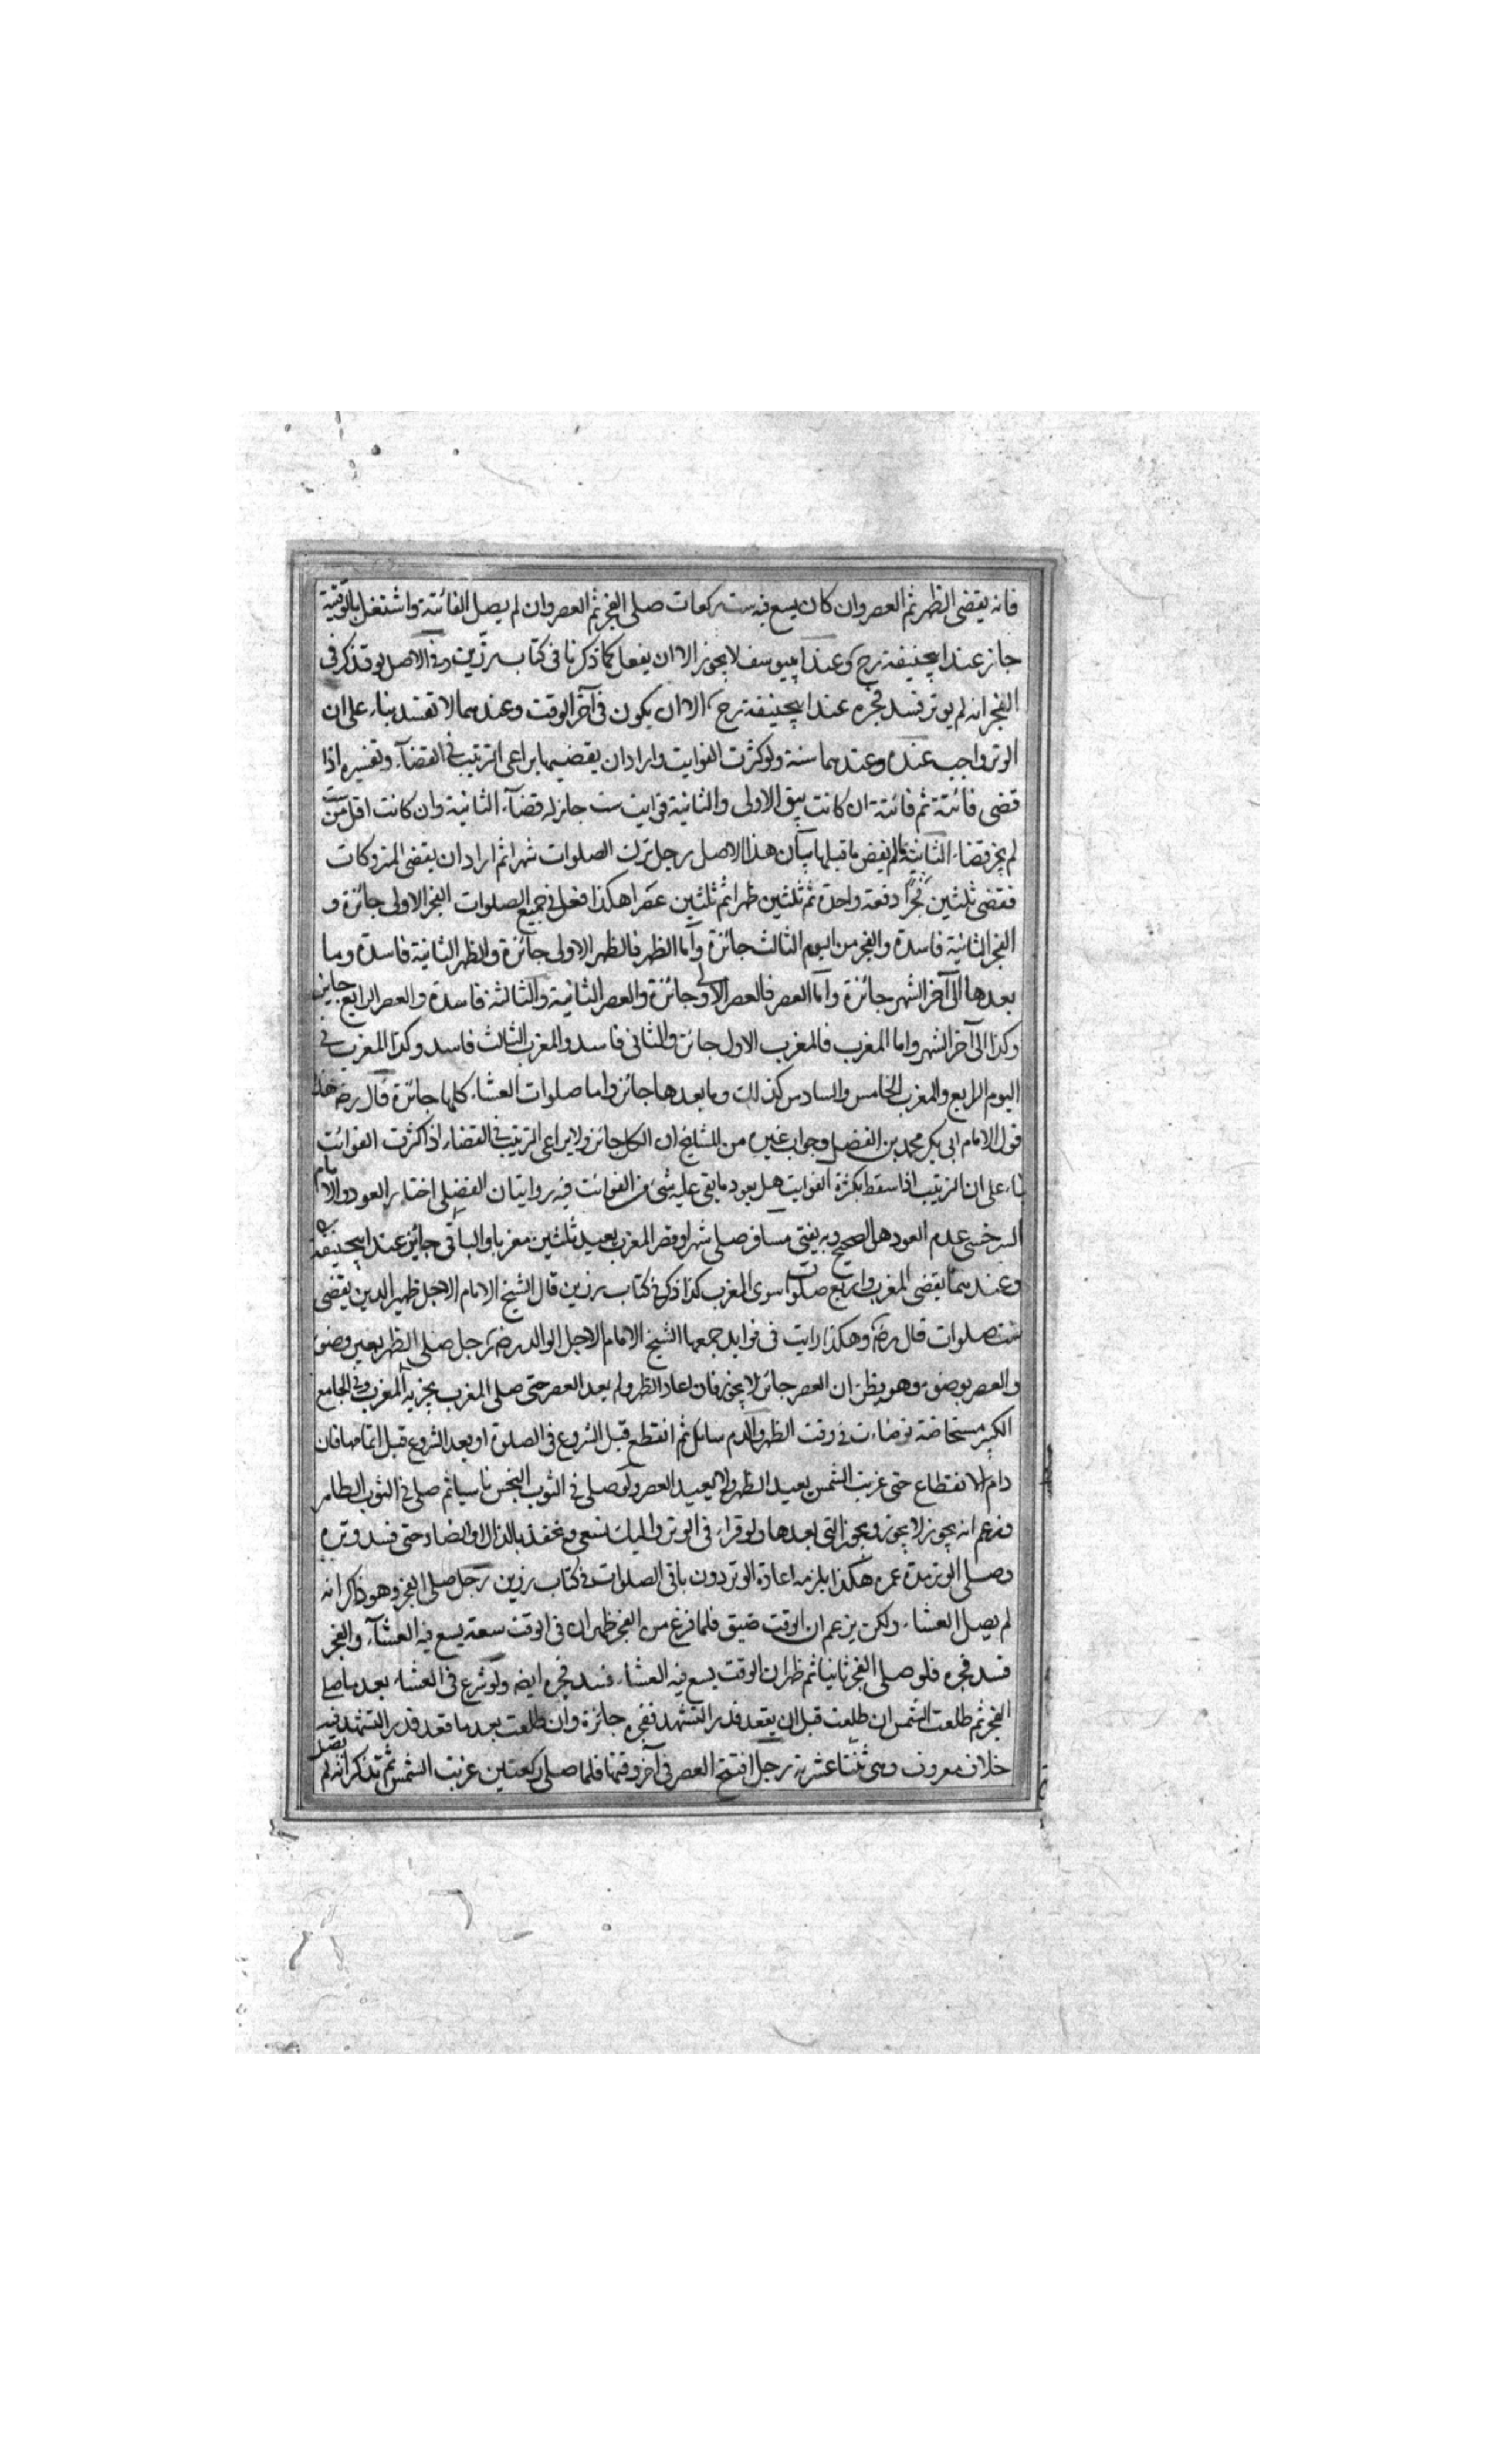 فانه يقضى الظهر ثم العصر وان كان يسع فيه ست ركعات صلى الفجر ثم العصر وان لم يصل الفائتة واشتغل بالوقتية
جاز عند ابيحنيفة رح وعند ابييوسف لا يجوز الا ان يفعل كما ذكرنا فى كتاب رزين وفى الاصل لو تذكر فى
الفجر انه لم يوتر فسد فجره عند ابيحنيفة رح الا ان يكون فى آخر الوقت وعندهما لا تفسد بناء على ان
الوتر واجب عنده وعندهما سنة ولو كثرت الفوايت واراد ان يقضيها يراعى الترتيب فى القضآء وتفسيره اذا
قضى فائتة ثم فائتة ان كانت بين الاولى والثانية فوايت ست جاز له قضآء الثانية وان كانت اقل من ست
لم يجز قضاء الثانية مالم يقض ما قبلها بيان هذا الاصل رجل ترك الصلوات شهرا ثم اراد ان يقضى المتروكات
فقضى ثلثين فجرا دفعة واحدة ثم ثلثين ظهرا ثم ثلثين عصرا هكذا فعل فى جميع الصلوات الفجر الاولى جائزة و
الفجر الثانية فاسدة والفجر من اليوم الثالث جائزة واما الظهر فالظهر الاولى جائزة والظهر الثانية فاسدة وما
بعدها الى آخر الشهر جائزة واما العصر فالعصر الاولى جائزة والعصر الثانية والثالثة فاسدة والعصر الرابع جايز
وكذا الى آخر الشهر واما المغرب فالمغرب الاول جائز والثانى فاسد والمغرب الثالث فاسد وكذا المغرب فى
اليوم الرابع والمغرب الخامس والسادس كذلك وما بعدها جائز واما صلوات العشاء كلها جائزة قال رضه هذا
قول الامام ابى بكر محمد بن الفضل وجواب غيره من المشايخ ان الكل جائز ولا يراعى الترتيب فى القضاء اذا كثرت الفوائت
بناء على ان الترتيب اذا سقط بكثرة الفوايت هل يعود ما بقى عليه شئ من الفوائت فيه روايتان الفضلى اختار العود والامام
السرخسى عدم العود هل الصحيح وبه يفتى مسافر صلى شهرا وقصر المغرب يعيد ثلثين مغربا والباقى جائز عند ابيحنيفة
وعندهما يقضى المغرب واربع صلوات سوى المغرب كذا ذكر فى كتاب رزين قال الشيخ الامام الاجل ظهير الدين يقضى
ست صلوات قال رضه وهكذا رايت فى فوايد جمعها الشيخ الامام الاجل الوالد رضه رجل صلى الظهر بغير وضوء
والعصر بوضوء وهو يظن ان العصر جائز لا يجوز فان اعاد الظهر ولم يعد العصر حتى صلى المغرب يجزيه المغرب وفى الجامع
الكبير مستحاضة توضاءت فى وقت الظهر والدم سائل ثم انقطع قبل الشروع فى الصلوة او بعد الشروع قبل اتمامها فان
دام الانقطاع حتى غربت الشمس يعيد الظهر ولا يعيد العصر ولو صلى فى الثوب النجس ناسيا ثم صلى فى الثوب الطاهر
وزعم انه يجوز لا يجوز ويجوز التى بعدها ولو قراء فى الوتر واليك نسعى ونحفذ بالذال او الضاد حتى فسد وتره
وصلى الوتر مدة عمره هكذا يلزمه اعادة الوتر دون باقى الصلوات فى كتاب رزين رجل صلى الفجر وهو ذاكر انه
لم يصل العشاء ولكن يزعم ان الوقت ضيق فلما فرغ من الفجر ظهر ان فى الوقت سعة يسع فيه العشآء والفجر
فسد فجره فلو صلى الفجر ثانيا ثم ظهر ان الوقت يسع فيه العشاء فسد فجره ايضه ولو شرع فى العشاء بعد ما صلى
الفجر ثم طلعت الشمس ان طلعت قبل ان يقعد قدر التشهد ففجره جائزة وان طلعت بعد ما قعد قدر التشهد فيه
خلاف معروف وهى ثنتا عشرية رجل افتتح العصر فى آخر وقتها فلما صلى ركعتين غربت الشمس ثم تذكر انه لم يصل